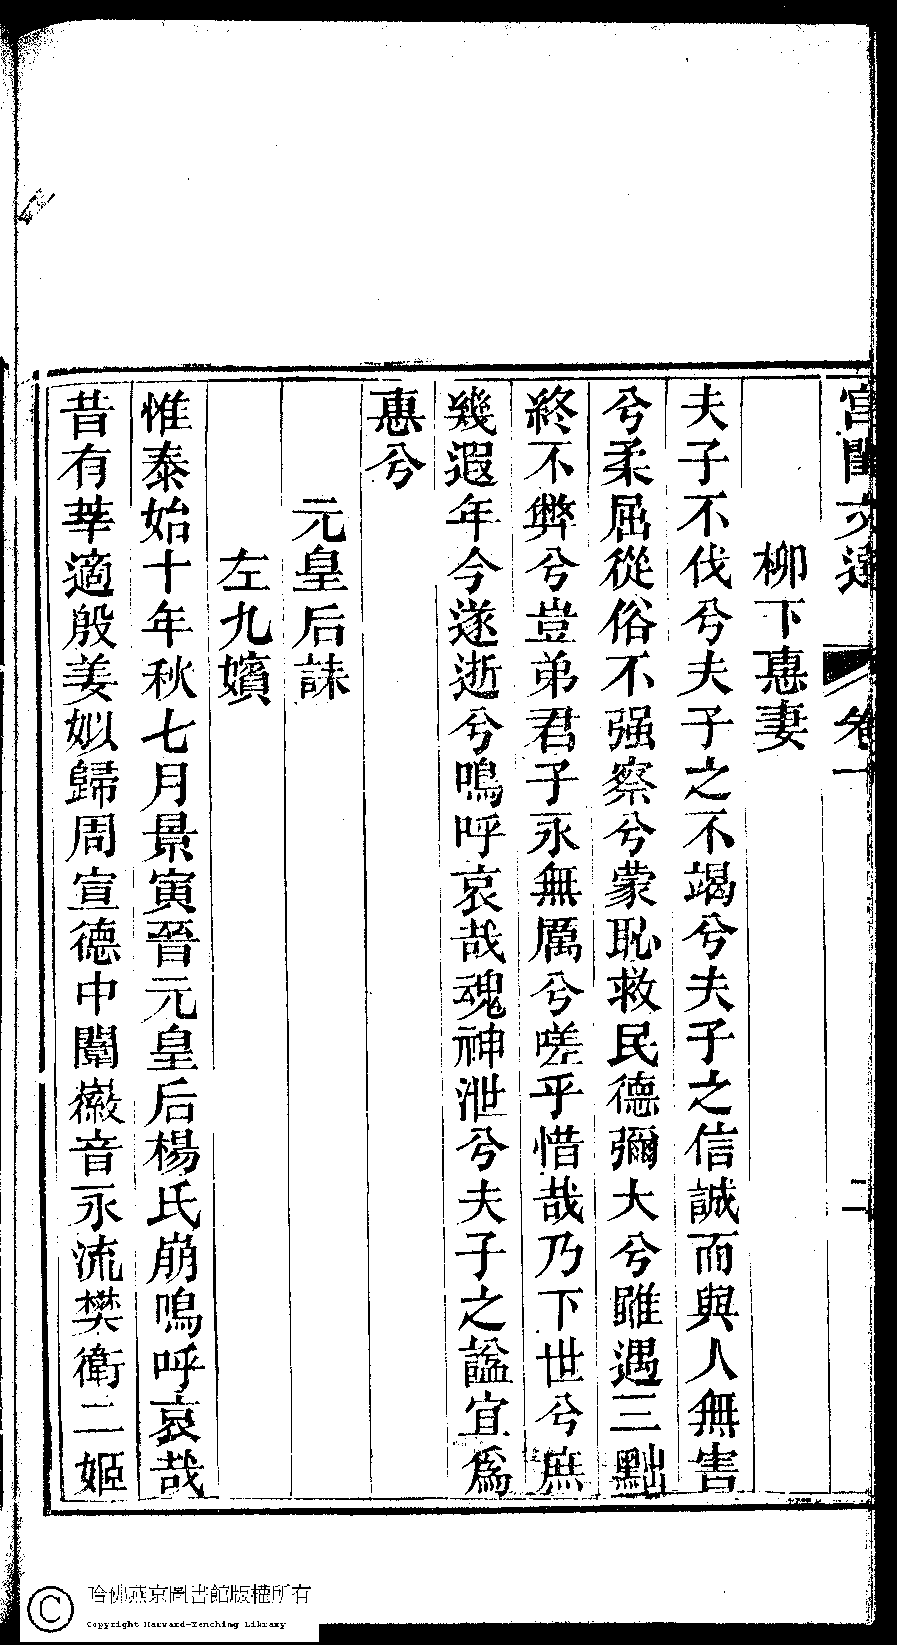 宮閨文選 卷一 二
柳下惠妻
夫子不伐兮夫子之不竭兮夫子之信誠而與人無害
兮柔屈從俗不强察兮蒙恥救民德彌大兮雖遇三黜
終不弊兮豈弟君子永無厲兮嗟乎惜哉乃下世兮庶
幾遐年今遂逝兮嗚呼哀哉魂神泄兮夫子之諡宜爲
惠兮
元皇后誄
左九嬪
惟泰始十年秋七月景寅晉元皇后楊氏崩嗚呼哀哉
昔有莘適殷姜姒歸周宣德中闈徽音永流樊衛二姬
哈佛燕京圖書館版權所有
Copyright Harvard-Yenching Library